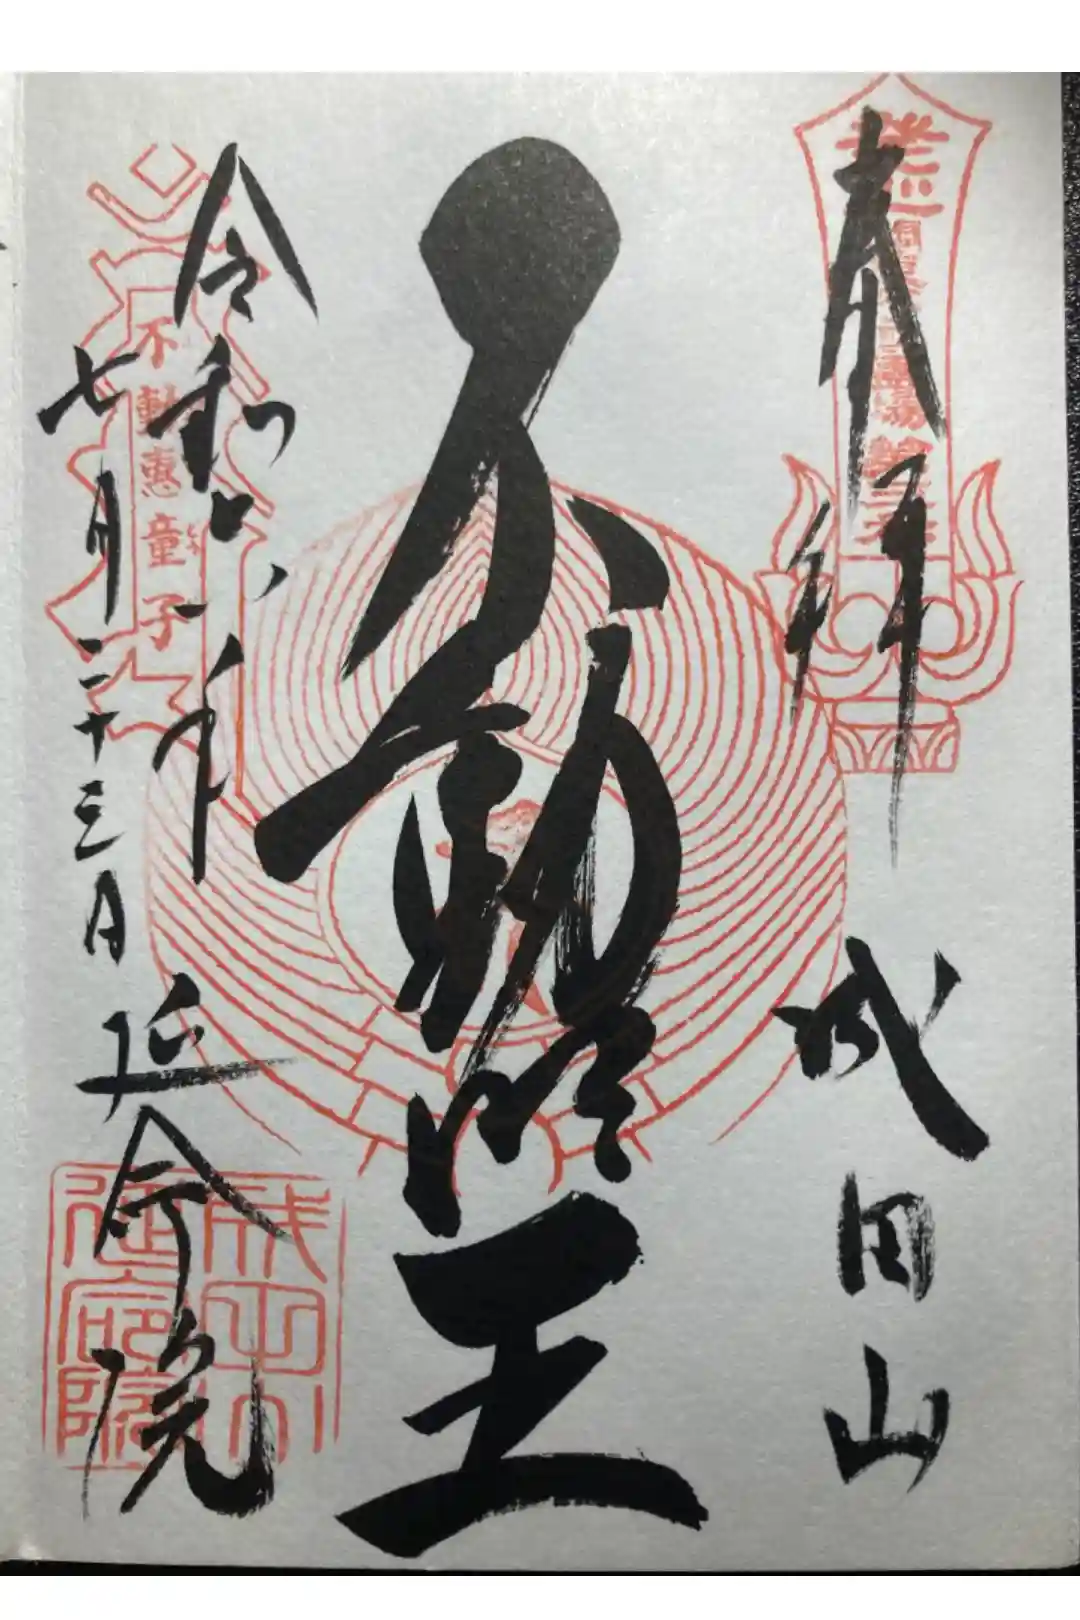 奉拝
成田山
不動明王
令和六年
七月二十三日
延命院
不動惠童子
成田山
延命院